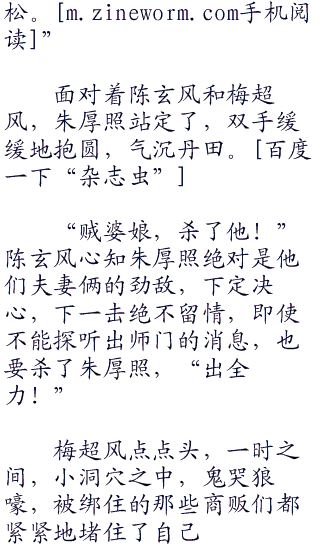 松。[m.zineworm.com手机阅
读]”
面对着陈玄风和梅超
风，朱厚照站定了，双手缓
缓地抱圆，气沉丹田。[百度
一下“杂志虫”]
“贼婆娘，杀了他！”
陈玄风心知朱厚照绝对是他
们夫妻俩的劲敌，下定决
心，下一击绝不留情，即使
不能探听出师门的消息，也
要杀了朱厚照，“出全
力！”
梅超风点点头，一时之
间，小洞穴之中，鬼哭狼
嚎，被绑住的那些商贩们都
紧紧地堵住了自己